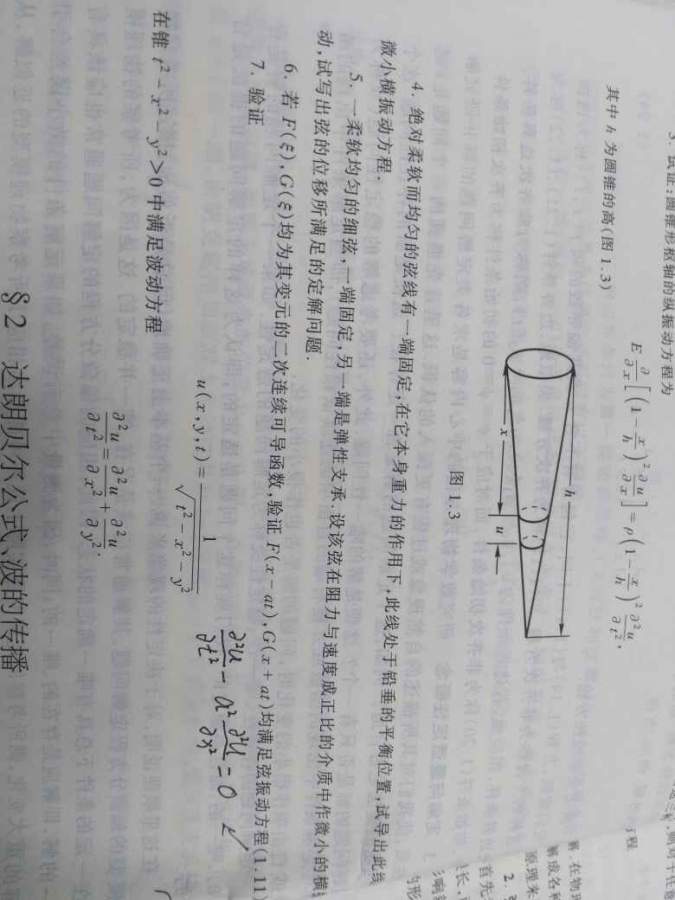 3. 试证:圆锥形枢轴的纵振动方程为
E ∂/∂x[(1-x/h)² ∂u/∂x]=ρ(1-x/h)² ∂²u/∂t²,
其中 h 为圆锥的高(图 1.3)
h
x
u
图 1.3
4. 绝对柔软而均匀的弦线有一端固定,在它本身重力的作用下,此线处于铅垂的平衡位置,试导出此线
微小横振动方程.
5. 一柔软均匀的细弦,一端固定,另一端是弹性支承.设该弦在阻力与速度成正比的介质中作微小的横
动,试写出弦的位移所满足的定解问题.
6. 若 F(ξ),G(ξ)均为其变元的二次连续可导函数,验证 F(x-at),G(x+at)均满足弦振动方程(1.11)
∂²u/∂t² - a² ∂²u/∂x² = 0 ✓
7. 验证
u(x,y,t)=1/√(t²-x²-y²)
在锥 t²-x²-y²>0 中满足波动方程
∂²u/∂t²=∂²u/∂x²+∂²u/∂y².
§2 达朗贝尔公式、波的传播
程
解.在物理
解成各种
原理来
2.
首先